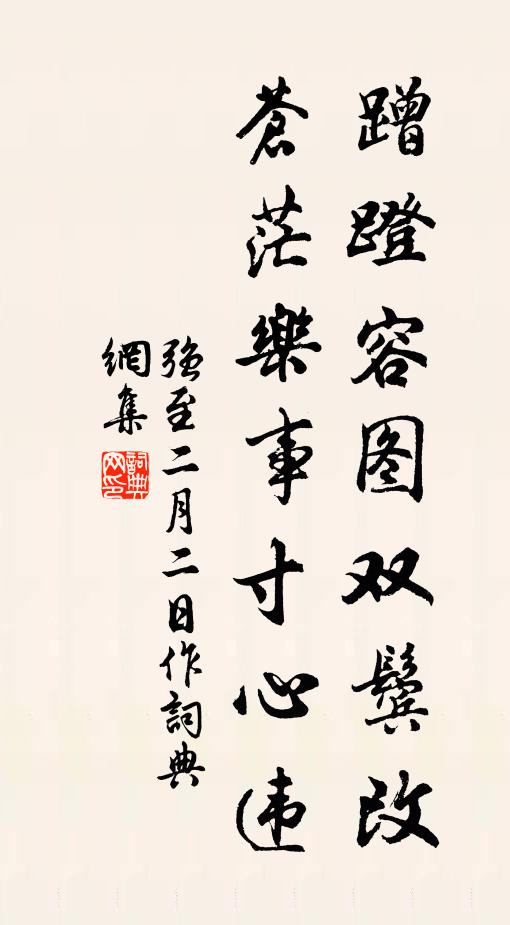 蹭蹬容图双鬓改
苍茫樂事寸心违
强至二月二日作詞典
網集
詞典
网印